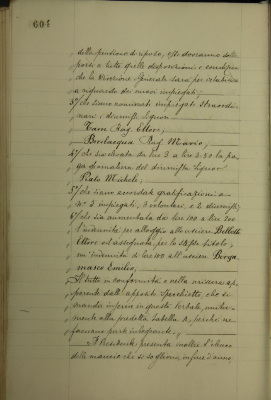 604
della pensione di riposo, essi dovranno sotto-
porsi a tutte quelle disposizioni e condizioni
che la Direzione Generale sarà per stabilire
a riguardo dei nuovi impiegati;
3/ che siano nominati impiegati straordi-
nari i diurnisti Signori
Rag. Ettore,
Bevilacqua Rag. Mario,
4/ che sia elevata da lire 3 a lire 3.50 la pa-
ga giornaliera del diurnista Signor
Prato Michele;
5/ che siano accordate gratificazioni a
N° 3 impiegati, 3 volontari, e 2 diurnisti;
6/ che sia aumentata da lire 100 a lire 200
l'indennità per alloggio all'usciere Bellotti
Ettore ed assegnata, per lo stesso titolo,
un'indennità di lire 100 all'usciere Berga-
masco Emilio;
Il tutto in conformità e nella misura ap-
parente dall'apposito Specchietto, che si
manda inserire in questo verbale, unita-
mente alla predetta Tabella A, perchè ne
facciano parte integrante.
Il Presidente presenta inoltre l'elenco
delle mancie che si sogliono, in fine d'anno,